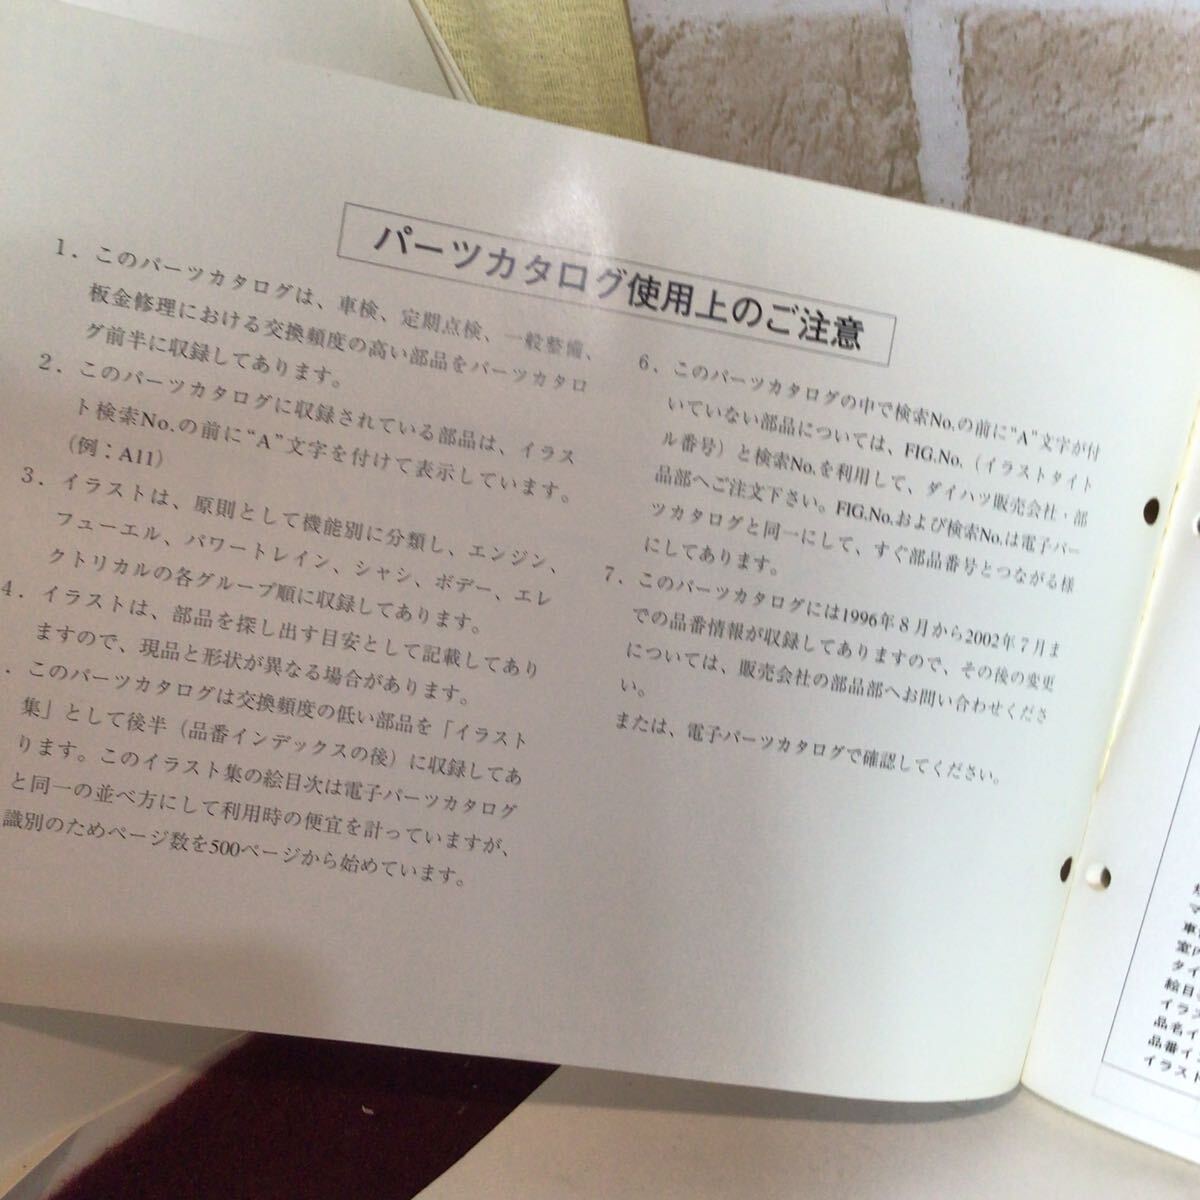 パーツカタログ使用上のご注意
1．このパーツカタログは、車検、定期点検、一般整備、
板金修理における交換頻度の高い部品をパーツカタロ
グ前半に収録してあります。
2．このパーツカタログに収録されている部品は、イラス
ト検索No.の前に“A”文字を付けて表示しています。
（例：A11）
3．イラストは、原則として機能別に分類し、エンジン、
フューエル、パワートレイン、シャシ、ボデー、エレ
クトリカルの各グループ順に収録してあります。
4．イラストは、部品を探し出す目安として記載してあり
ますので、現品と形状が異なる場合があります。
．このパーツカタログは交換頻度の低い部品を「イラスト
集」として後半（品番インデックスの後）に収録してあ
ります。このイラスト集の絵目次は電子パーツカタログ
と同一の並べ方にして利用時の便宜を計っていますが、
識別のためページ数を500ページから始めています。
6．このパーツカタログの中で検索No.の前に“A”文字が付
いていない部品については、FIG.No.（イラストタイト
ル番号）と検索No.を利用して、ダイハツ販売会社・部
品部へご注文下さい。FIG.No.および検索No.は電子パー
ツカタログと同一にして、すぐ部品番号とつながる様
にしてあります。
7．このパーツカタログには1996年8月から2002年7月ま
での品番情報が収録してありますので、その後の変更
については、販売会社の部品部へお問い合わせくださ
い。
または、電子パーツカタログで確認してください。
マ
車
室内
タイ
絵目
イラス
品名イ
品番イン
イラスト